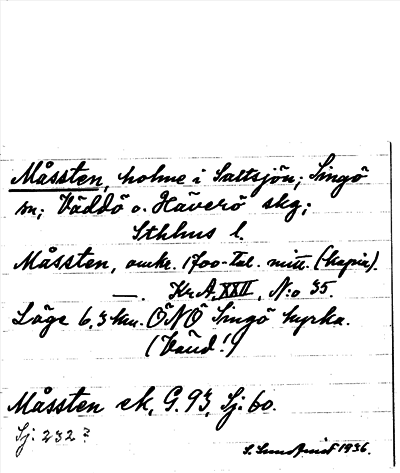 Måssten, holme i Saltsjön; Singö
sn; Väddö o. Häverö skg;
Sthlms l.
Måssten, omkr. 1700-tal. mitt. (kopia).
—. Kr.A. XXII, N:o 35.
Läge 6,3 km. ÖNÖ Singö kyrka.
(Vänd!)
Måssten ek, G. 93, Sj: 60.
Sj: 232?
S. Sundqvist 1936.